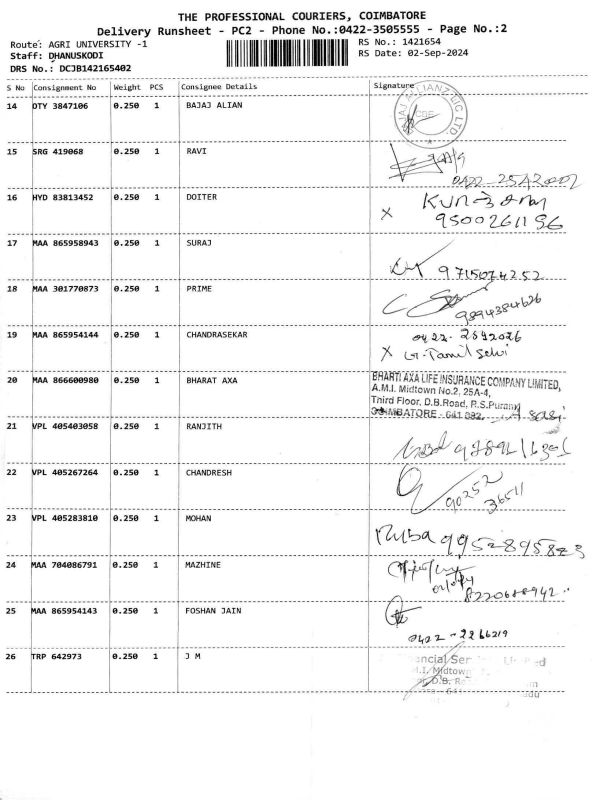 THE PROFESSIONAL COURIERS, COIMBATORE
Delivery Runsheet - PC2 - Phone No.:0422-3505555 - Page No.:2
Route: AGRI UNIVERSITY -1
RS No.: 1421654
Staff: DHANUSKODI
RS Date: 02-Sep-2024
DRS No.: DCJB142165402
S No Consignment No Weight PCS Consignee Details Signature
14 OTY 3847106 0.250 1 BAJAJ ALIAN
15 SRG 419068 0.250 1 RAVI
16 HYD 83813452 0.250 1 DOITER
X 9500261156
17 MAA 865958943 0.250 1 SURAJ
9715074252
18 MAA 301770873 0.250 1 PRIME
9894384626
19 MAA 865954144 0.250 1 CHANDRASEKAR
0422-2542026
X G. Tamil Selvi
20 MAA 866600980 0.250 1 BHARAT AXA
BHARTI AXA LIFE INSURANCE COMPANY LIMITED,
A.M.I. Midtown No.2, 25A-4,
Third Floor, D.B.Road, R.S.Puram,
COIMBATORE - 641 002.
21 VPL 405403058 0.250 1 RANJITH
22 VPL 405267264 0.250 1 CHANDRESH
90252
36511
23 VPL 405283810 0.250 1 MOHAN
24 MAA 704086791 0.250 1 MAZHINE
25 MAA 865954143 0.250 1 FOSHAN JAIN
0422-2266219
26 TRP 642973 0.250 1 J M